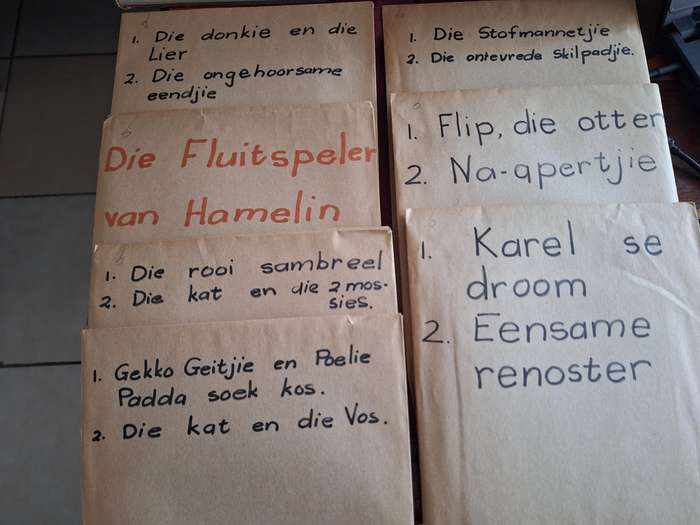 1. Die donkie en die
Lier
2. Die ongehoorsame
eendjie
Die Fluitspeler
van Hamelin
1. Die rooi sambreel
2. Die kat en die 2 mos-
sies.
1. Gekko Geitjie en Poelie
Padda soek kos.
2. Die kat en die Vos.
1. Die Stofmannetjie
2. Die ontevrede Skilpadjie.
1. Flip, die otter
2. Na-apertjie
1. Karel se
droom
2. Eensame
renoster